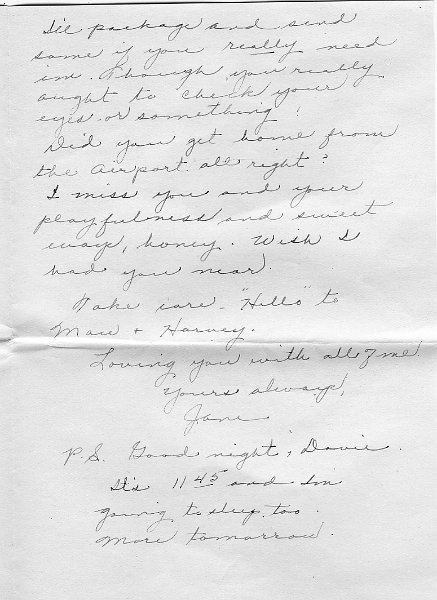 I'll package and send
some if you really need
'im. Though you really
ought to check your
eyes or something!
Did you get home from
the airport all right?
I miss you and your
playfulness and sweet
ways, honey. Wish I
had you near.
Take care - "Hello" to
+ Harvey.
Loving you with all of me
Yours always,
Jane
P.S. Good night, Davie.
It's 11 45 and I'm
going to sleep too.
More tomorrow.